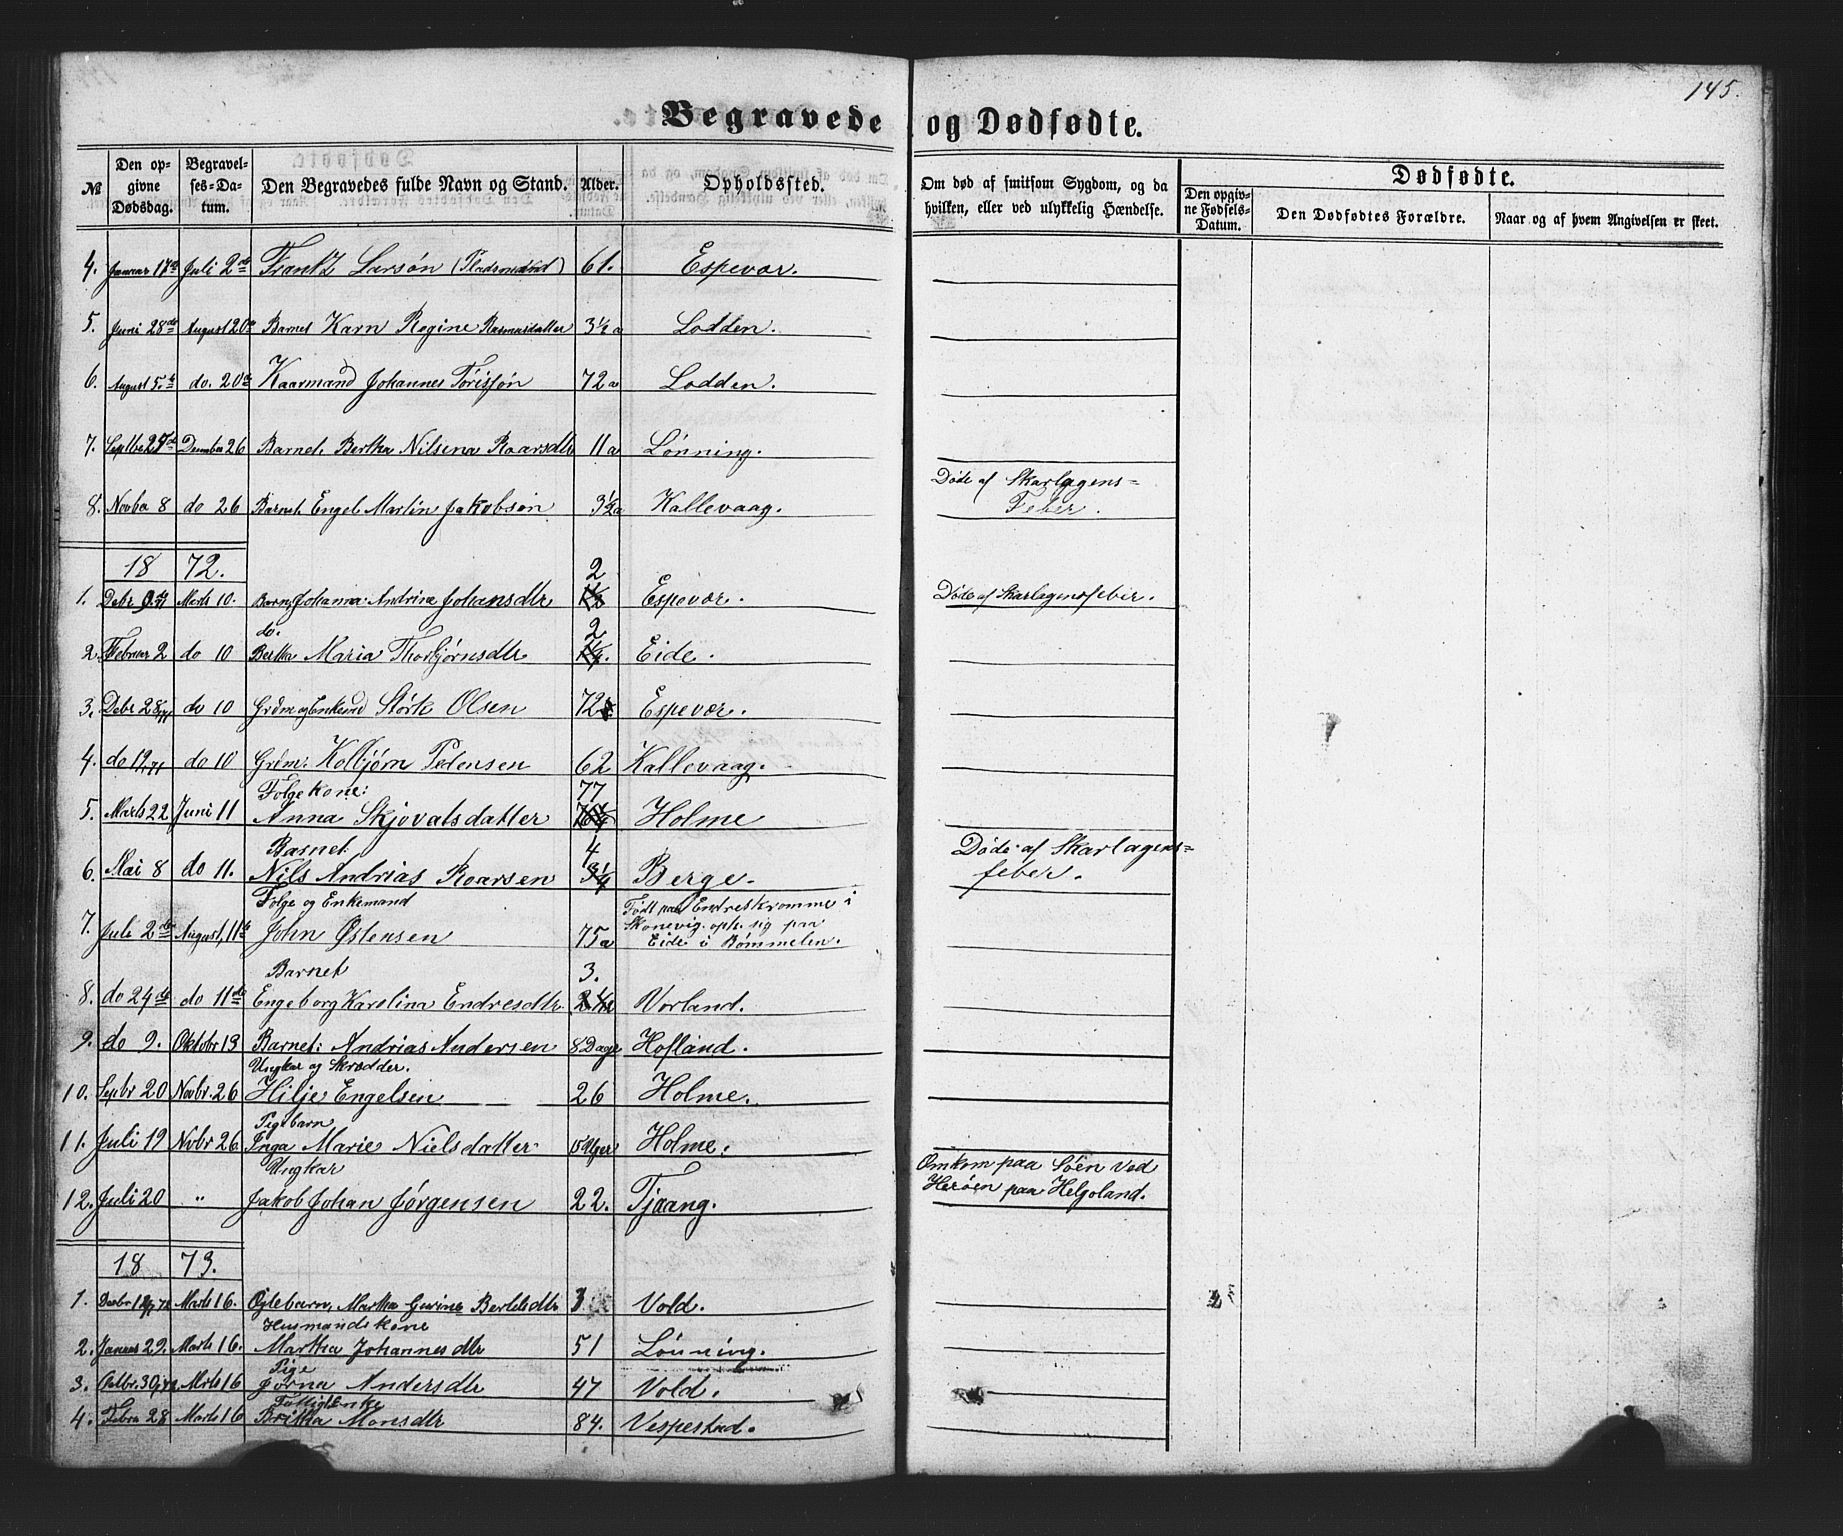 145.
Begravede og Dødfødte.
№ Den opgivne Dødsdag. Begravelses-Datum. Den Begravedes fulde Navn og Stand. Alder. Opholdssted. Om død af smitsom Sygdom, og da hvilken, eller ved ulykkelig Hændelse. Dødfødte.
Den opgivne Fødsels-Datum. Den Dødfødtes Forældre. Naar og af hvem Angivelsen er skeet.
4. Januar 17de Juli 2de Frantz Larsøn (Pladsmand) 61. Espevær.
5. Juni 28de August 20de Barnet Karn Regine Rasmusdatter 3½ a Lodden.
6. August 5.te do. 20de Kaarmand Johannes Torisøn 72 a Lodden.
7. Septbr 25de December 26 Barnet Bertha Nilsena Roarsdtr 11 a Lønning.
8. Novbr 8 do 26 Barnet Engel Martin Jakobsøn 3½ a Kallevaag. Døde af Skarlagens=
Feber.
18 72.
2
1. Debr 9 71 Marts 10. Barn, Johanna Andrina Johansdtr 1½ Espevær. Døde af Skarlagensfeber.
do. 2
2. Februar 2 do 10 Bertha Maria Thorbjørnsdtr Eide.
3. Debr 28/71 do 10 Grdm og Enkemd Størk Olsen 72 Espevær.
4. do 19/71 do 10 Grdm: Kolbjørn Pedersen 62 Kallevaag.
Følgekone: 77
5. Marts 22 Juni 11 Anna Skjovatsdatter 76¼ Holme
Barnet 4
6. Mai 8 do 11. Nils Andrias Roarsen 3¼ Berge. Døde af Skarlagens=
feber.
Følge og Enkemand Født paa Endreskromme i
7. Juli 2den August, 11te John Østensen 75 a Skonevig. oph. sig paa
Eide i Bømmelen.
Barnet 3.
8. do 24de do 11te Engeborg Karolina Endresdtr. Vorland.
9. do 9. Oktobr 13 Barnet: Andrias Andersen 8 Dage Hofland.
Ungkar og Skrædder.
10. Sepbr 20 Novbr. 26 Hilje Engelsen 26 Holme.
Pigebarn
11. Juli 19 Novbr 26. Inga Marie Nielsdatter 15 Uger Holme.
Ungkar Omkom paa Søen ved
12. Juli 20 " Jakob Johan Jørgensen 22. Tjaang. Herøen paa Helgoland.
18 73.
1. Decbr 12/72 Marts 16. Egtebarn, Martha Gurine Bertelsdtr 3 Vold.
Husmandskone
2. Januar 29. Marts 16. Martha Johannesdtr 51 Lønning.
Pige
3. Oktbr. 30/72 Marts 16 Jørna Andersdtr 47 Vold.
Fattigenke
4. Febru 28 Marts 16 Britha Monsdtr 84. Vespestad.